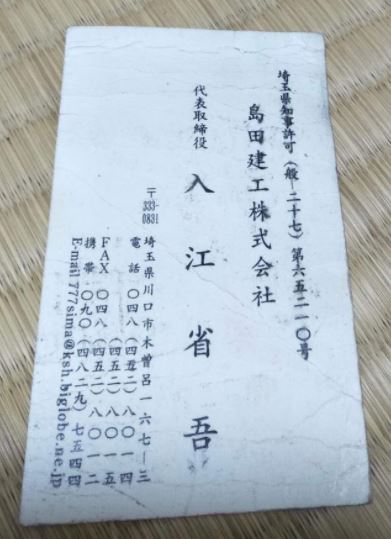 埼玉県知事許可(般―二十七)第六五二一〇号
島田建工株式会社
代表取締役 入江省吾
〒333-0831 埼玉県川口市木曽呂一六七―三
電話 〇四八(四五二)八〇一四
(四五二)八〇一五
FAX 〇四八(四五二)八〇一二
携帯 〇九〇(四八二九)七五四四
E-mail 777sima@ksh.biglobe.ne.jp